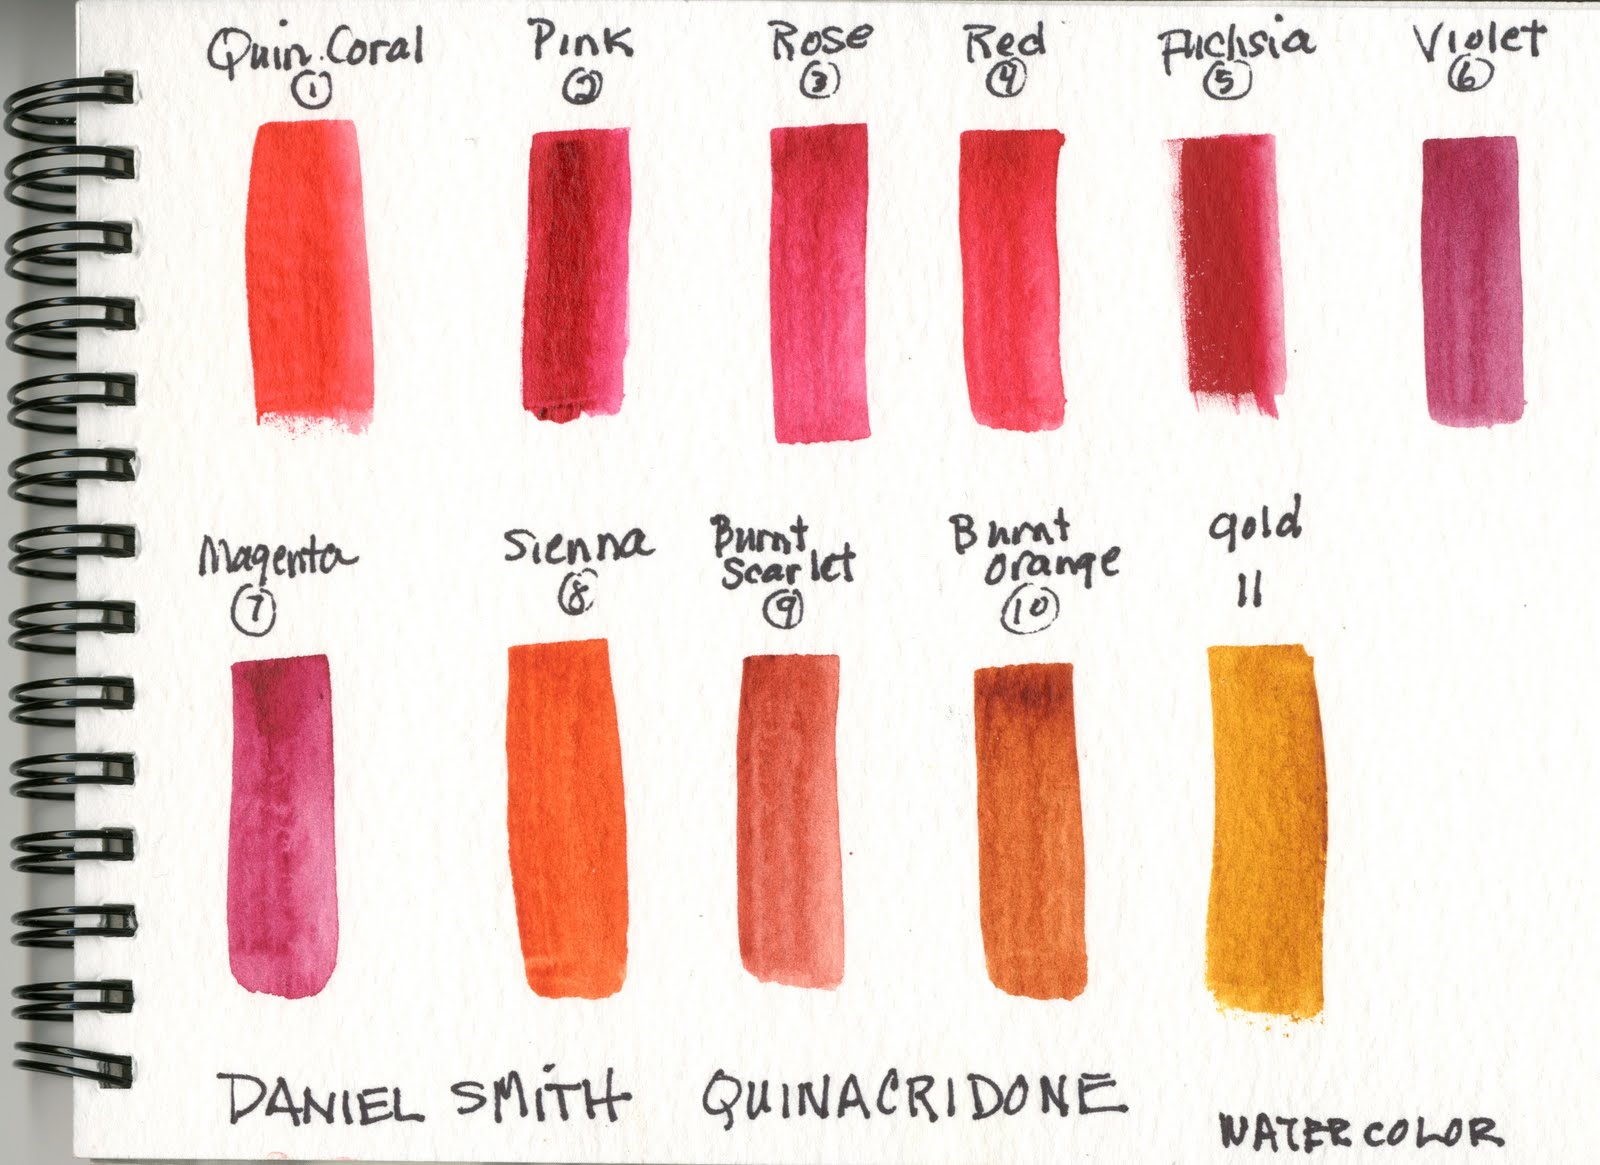 Quin. Coral
1
Pink
2
Rose
3
Red
4
Fuchsia
5
Violet
6
Magenta
7
Sienna
8
Burnt
Scarlet
9
Burnt
orange
10
gold
11
DANIEL SMITH QUINACRIDONE
WATERCOLOR